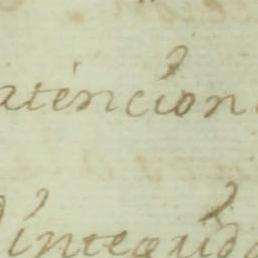 atencion
integrid